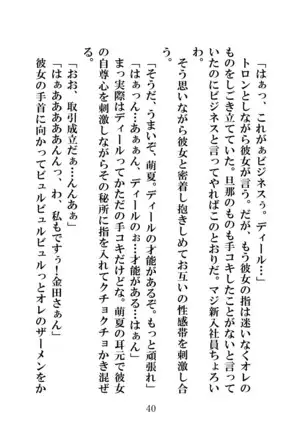 「はぁっ、これがぁビジネスぅ。ディール…」
トロンとしながら彼女が言う。だが、もう彼女の指は迷いなくオレの
ものをしごき立てていた。旦那のものも手コキしたことがないと言って
いたのにビジネスと言ってやればこのとおりだ。マジ新入社員ちょろい
わ。
そう思いながら彼女と密着し抱きしめてお互いの性感帯を刺激し合
う。
「そうだ、うまいぞ、萌夏。ディールの才能があるぞ。もっと頑張れ」
「はぁっん…あぁぁん、ディールのぉ…才能がある…はぁん」
まっ実際はディールってかただの手コキだけどな。萌夏の耳元で彼女
の自尊心を刺激しながらその秘所に指を入れてクチョクチョかき混ぜ
る。
「おお、取引成立だぁ…んんあぁ」
「はぁああああんんっ、わ、私もですぅ！金田さぁん」
彼女の手首に向かってビュルビュルビュルっとオレのザーメンをか
40